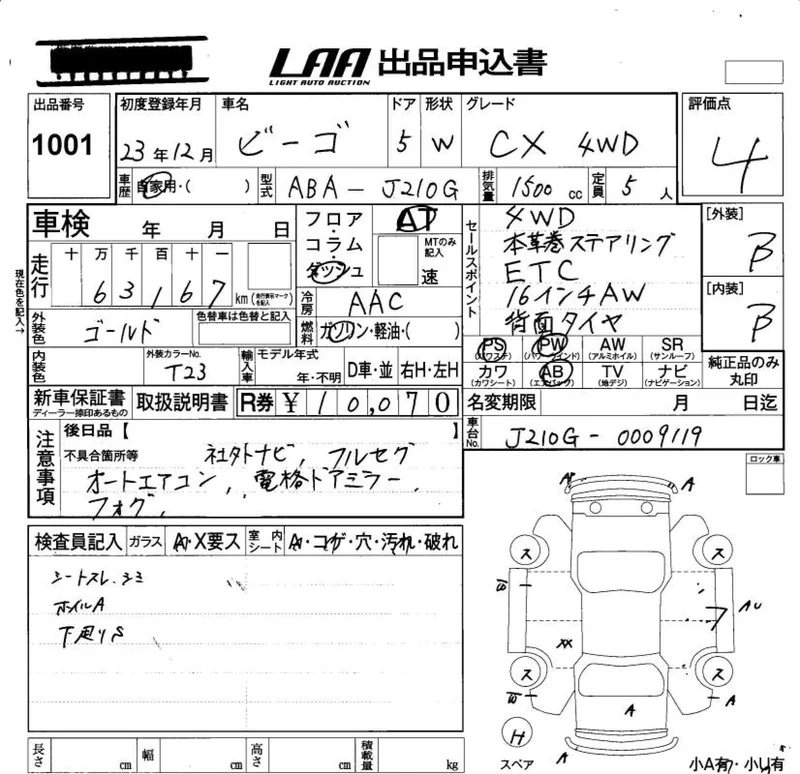 LAA 出品申込書
LIGHT AUTO AUCTION
出品番号
1001
初度登録年月
23年12月
車名
ビーゴ
ドア
5
形状
W
グレード
CX 4WD
評価点
4
車歴
自家用・( )
型式
ABA-J210G
排気量
1500 cc
定員
5 人
車検 年 月 日
フロア・コラム・ダッシュ
AT
MTのみ記入
速
セールスポイント
4WD
本革巻ステアリング
ETC
16インチAW
背面タイヤ
[外装]
B
[内装]
B
現在色を記入→
走行
十 万 千 百 十 一
63167 km
(走行表示マークを記入)
冷房
AAC
外装色
ゴールド
色替車は色替と記入
燃料
ガソリン・軽油・( )
内装色
外装カラーNo.
T23
輸入車
モデル年式
年・不明
D車・並
右H・左H
PS
(パワステ)
PW
(パワーウインド)
AW
(アルミホイル)
SR
(サンルーフ)
カワ
(カワシート)
AB
(エアバック)
TV
(地デジ)
ナビ
(ナビゲーション)
純正品のみ丸印
新車保証書
ディーラー捺印あるもの
取扱説明書
R券
¥10,070
名変期限 月 日迄
車台No.
J210G-0009119
注意事項
後日品【 】
不具合箇所等
社外ナビ, フルセグ
オートエアコン, 電格ドアミラー,
フォグ,
ロック車
検査員記入
ガラス
A・X要ス
室内シート
A・コゲ・穴・汚れ・破れ
シートスレ.シミ
ホイルA
下廻りS
A
A
ス
ス
AU
XX
ス
ス
A
A
H
スペア
A
小A有・小U有
長さ cm
幅 cm
高さ cm
積載量 kg